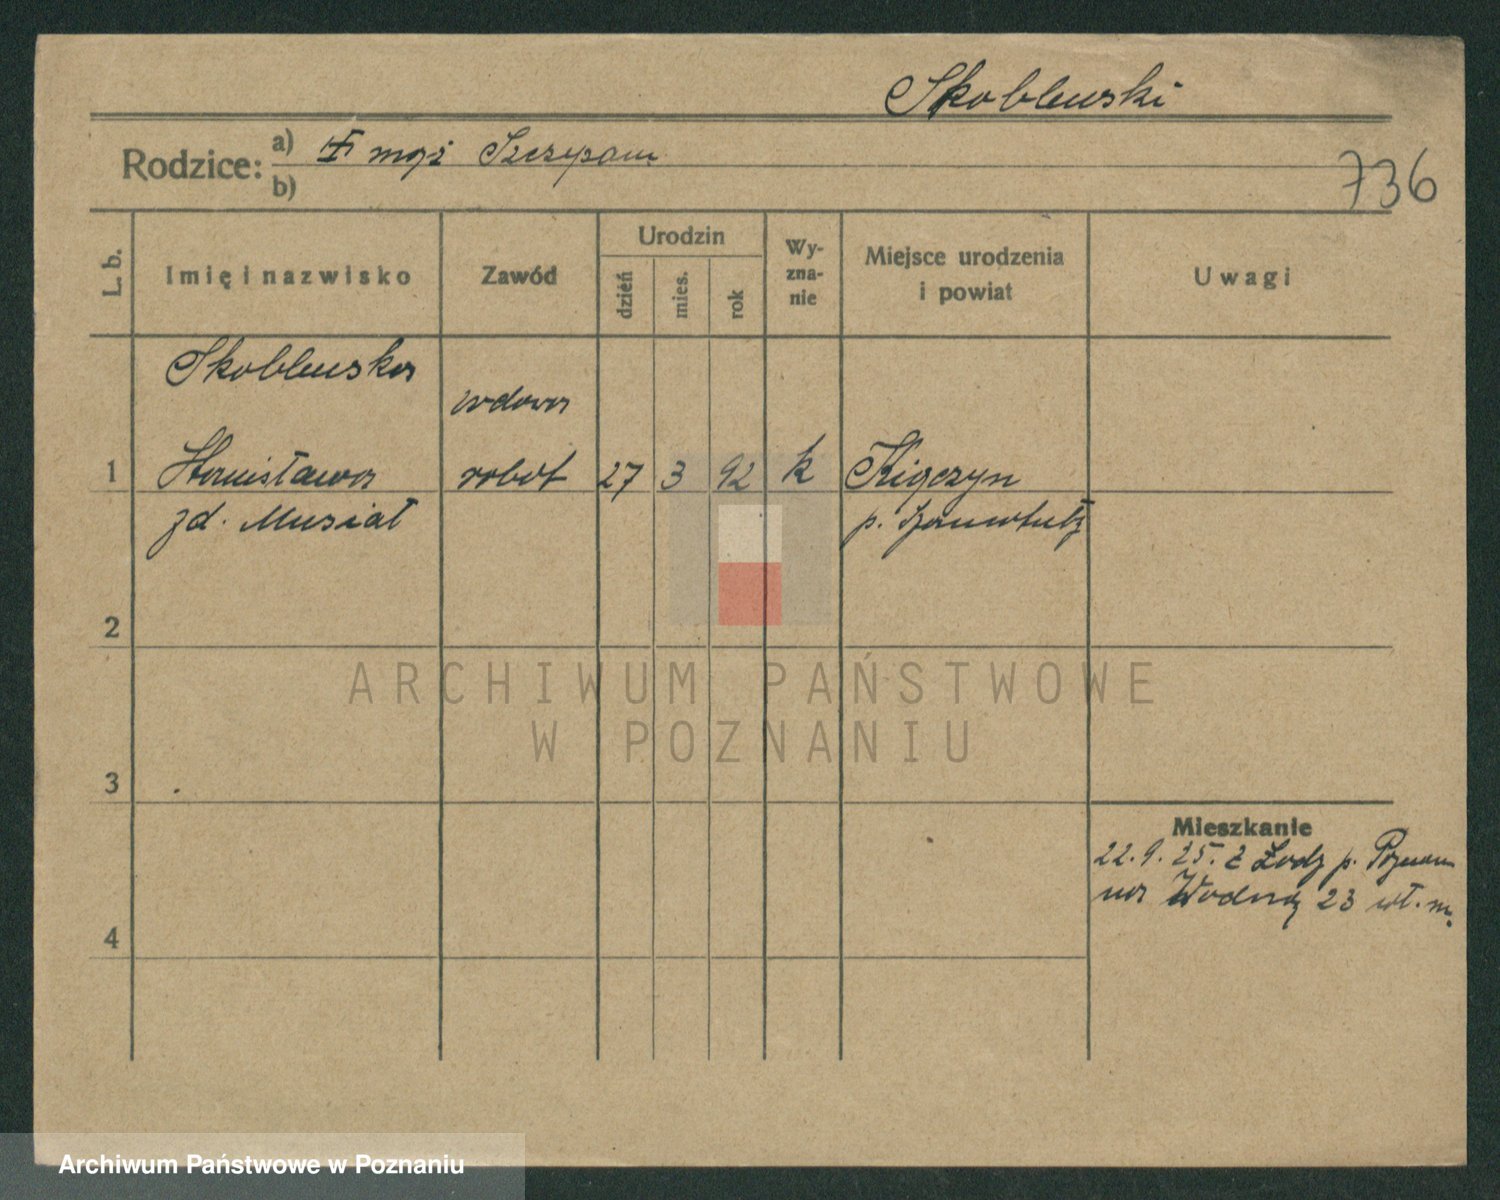 Skoblewski
Rodzice: a) I mąż Szczepan
b)
736
L. b.
Imię i nazwisko
Zawód
Urodzin
dzień
mies.
rok
Wy-
zna-
nie
Miejsce urodzenia
i powiat
Uwagi
Skoblewska
wdowa
1 Stanisława robot 27 3 92 k Kiączyn
zd. Musiał p. Szamotuły
2
ARCHIWUM PAŃSTWOWE
W POZNANIU
3
Mieszkanie
22.9.25. z Łodz p. Poznan
na Wodną 23 wł. m.
4
Archiwum Państwowe w Poznaniu